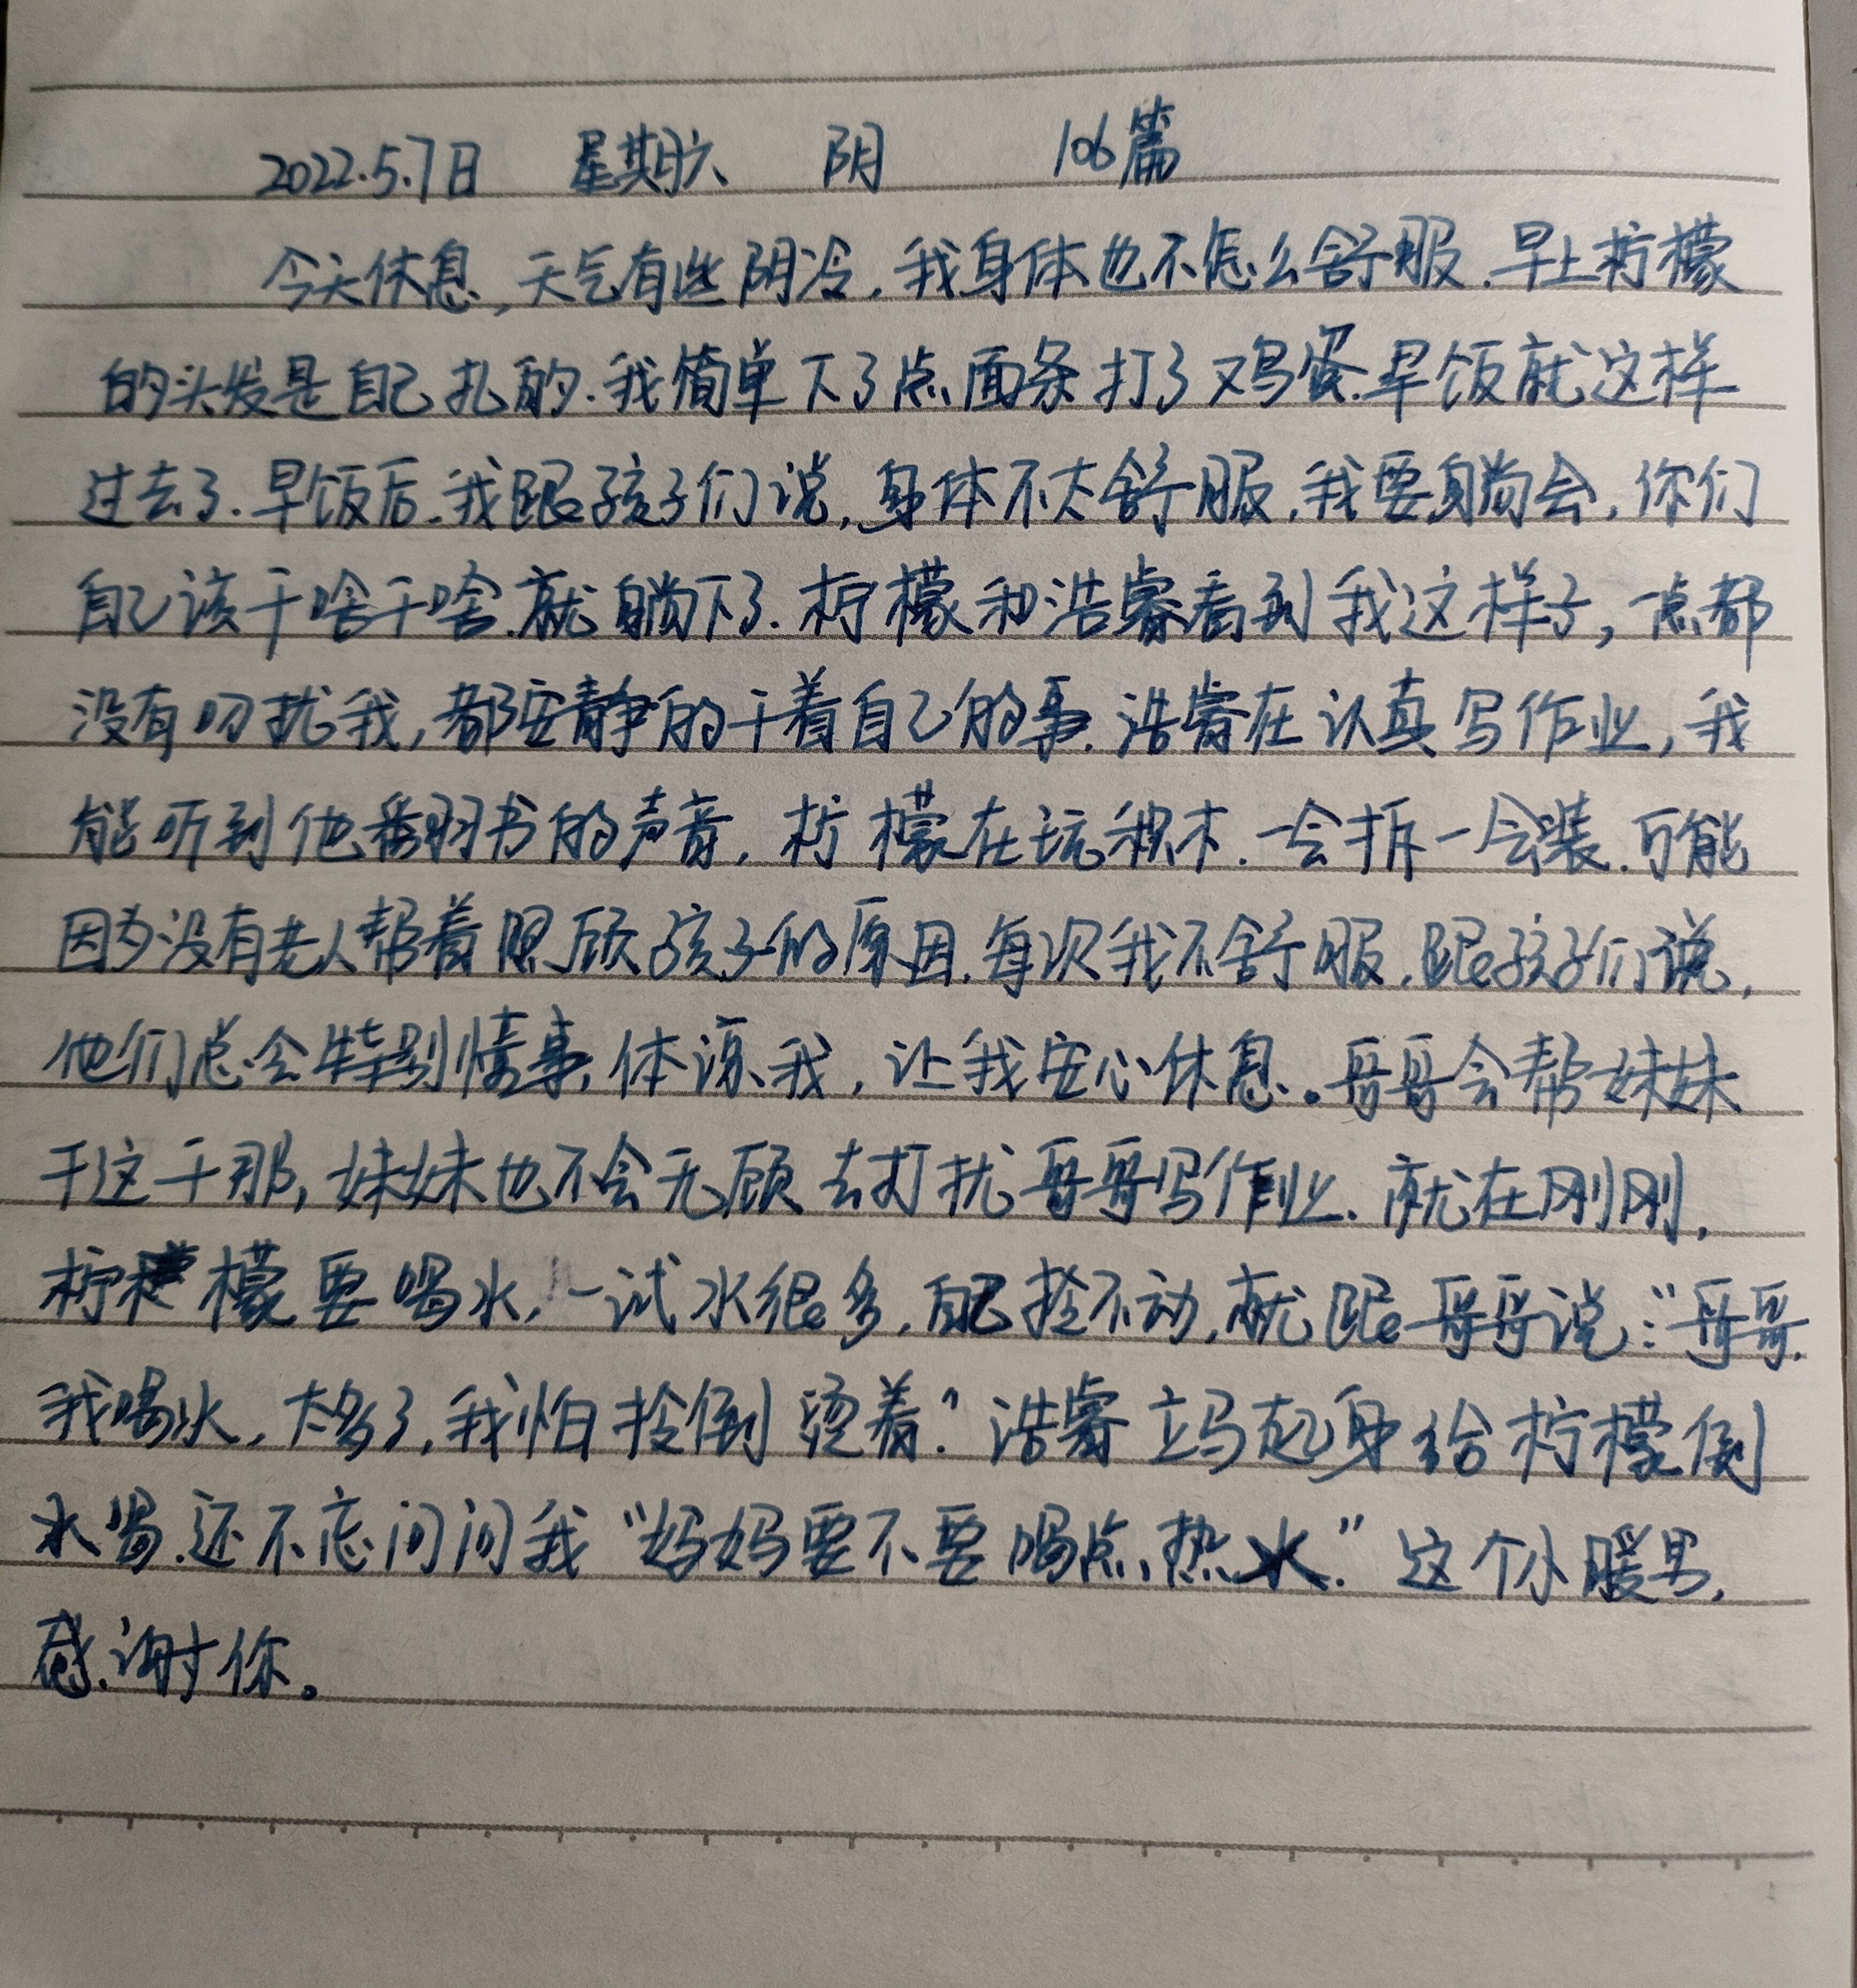 2022.5.7日 星期六 阴 106篇
今天休息,天气有些阴冷,我身体也不怎么舒服.早上柠檬
的头发是自己扎的.我简单下了点面条打了鸡蛋.早饭就这样
过去了.早饭后.我跟孩子们说,身体不大舒服,我要躺会,你们
自己该干啥干啥.就躺下了.柠檬和浩睿看到我这样子,一点都
没有叨扰我,都安静的干着自己的事.浩睿在认真写作业,我
能听到他翻书的声音,柠檬在玩积木.一会拆一会装.可能
因为没有老人帮着照顾孩子的原因.每次我不舒服,跟孩子们说,
他们总会特别懂事,体谅我,让我安心休息。哥哥会帮妹妹
干这干那,妹妹也不会无顾去打扰哥哥写作业.就在刚刚,
柠檬要喝水,一试水很多,自己拎不动,就跟哥哥说:“哥哥.
我喝水,太多了,我怕拎倒烫着”浩睿立马起身给柠檬倒
水喝.还不忘问问我“妈妈要不要喝点热水.”这个小暖男,
感谢你。